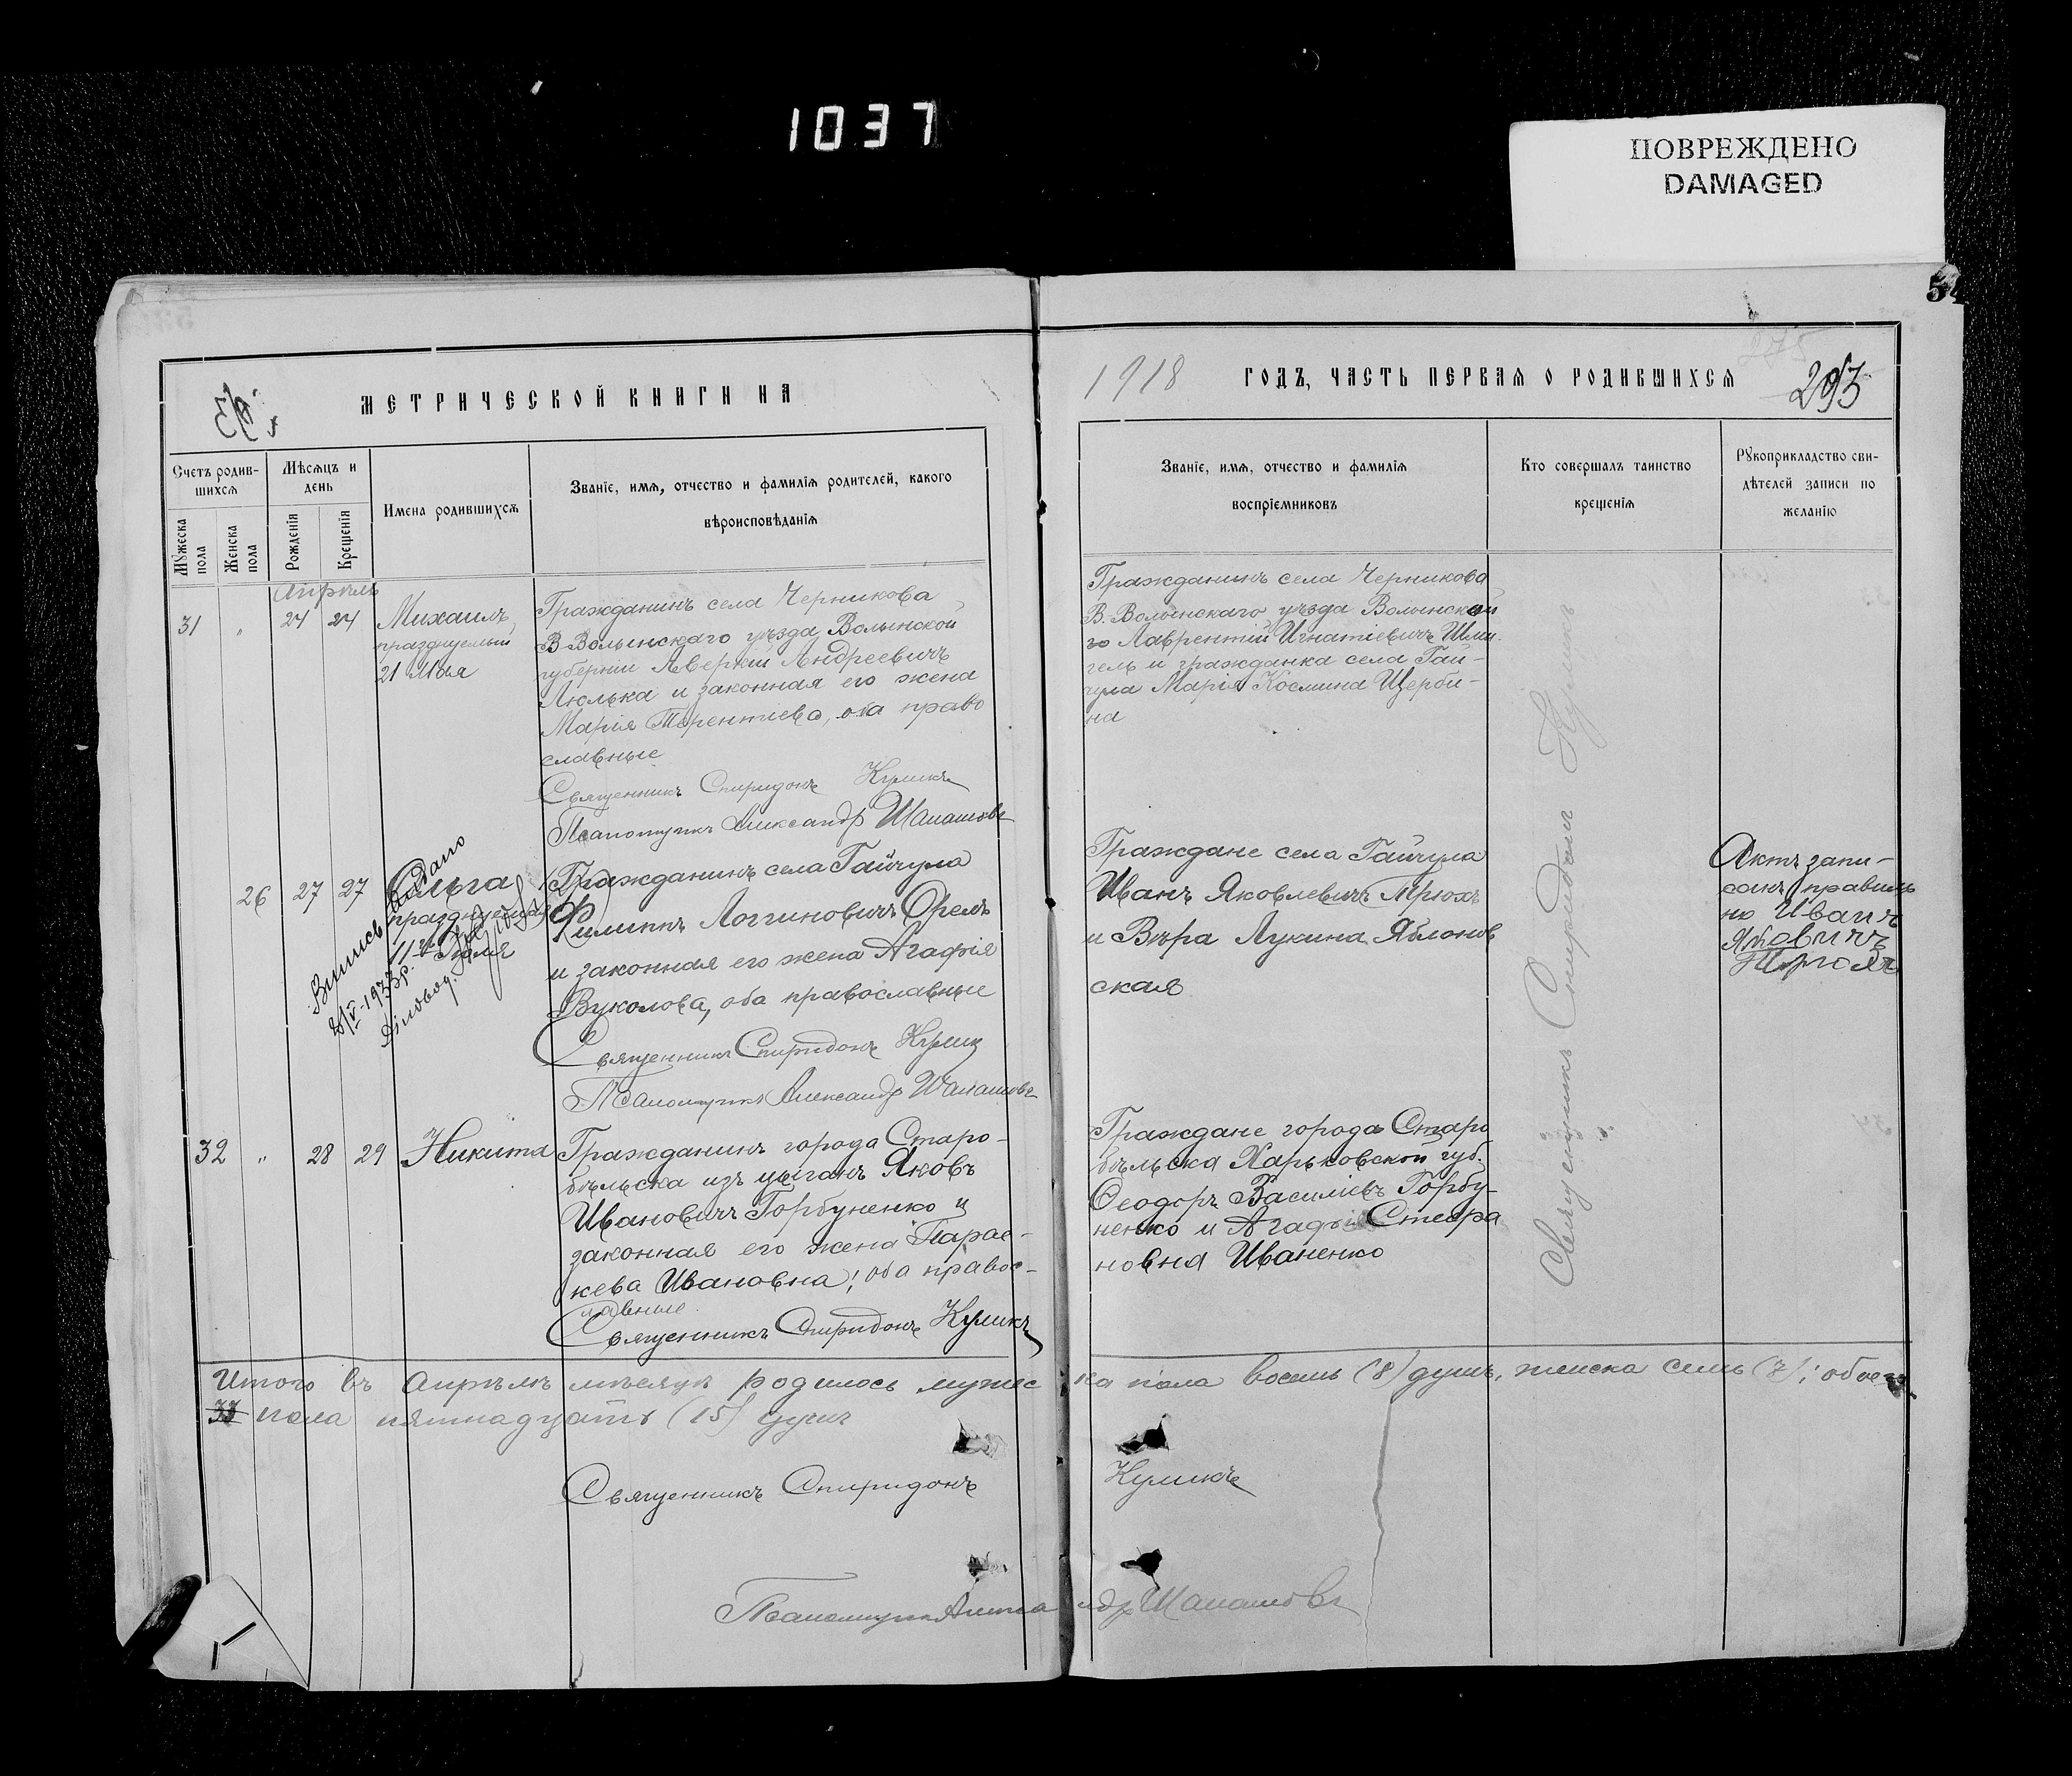 1037
ПОВРЕЖДЕНО
DAMAGED
54
МЕТРИЧЕСКОЙ КНИГИ НА
1918 ГОДЪ, ЧАСТЬ ПЕРВАЯ О РОДИВШИХСЯ
275
293
Счетъ родив-
шихся
Мужеска пола
Женска пола
Мѣсяцъ и
день
Рожденія
Крещенія
Имена родившихся
Званіе, имя, отчество и фамилія родителей, какого
вѣроисповѣданія
Званіе, имя, отчество и фамилія
воспріемниковъ
Кто совершалъ таинство
крещенія
Рукоприкладство сви-
дѣтелей записи по
желанію
Апрѣль
31 " 24 24
Михаилъ,
празднуемый
21 Мая
Гражданинъ села Черникова
В-Волынскаго уѣзда Волынской
губерніи Аверкій Андреевичъ
Люлька и законная его жена
Марія Терентіева, оба право
славные
Священникъ Спиридонъ Куликъ
Псаломщикъ Александр Шалашовъ
Гражданинъ села Черникова
В-Волынскаго уѣзда Волынской
го Лаврентій Игнатіевичъ Шми-
гель и гражданка села Гай-
чула Марія Космина Щерби-
на
26 27 27
Ольга
празднуемая
11го Іюля
Выпись выдано
1933р.
Гражданинъ села Гайчула
Филиппъ Логгиновичъ Орелъ
и законная его жена Агафія
Вуколова, оба православные
Священникъ Спиридонъ Куликъ
Псаломщикъ Александр Шалашовъ
Граждане села Гайчула
Иванъ Яковлевичъ Трюхъ
и Вѣра Лукина Яблонов
ская
Актъ запи-
санъ правиль
но Иванъ
32 " 28 29
Никита
Гражданинъ города Старо-
бѣльска изъ цыганъ Яковъ
Ивановичъ Горбуненко и
законная его жена Парас-
кева Ивановна; оба правос-
лавные
Священникъ Спиридонъ Куликъ
Граждане города Старо
бѣльска Харьковской губ.
Ѳеодоръ Василіевъ Горбу-
ненко и Агафія Стефа
новна Иваненко
Священникъ Спиридонъ Куликъ
Итого въ Апрѣлѣ мѣсяцѣ родилось мужес ка пола восемь (8) душъ, женска семь (7); обоего
пола пятнадцать (15) душъ
Священникъ Спиридонъ Куликъ
Псаломщикъ Александр Шалашовъ